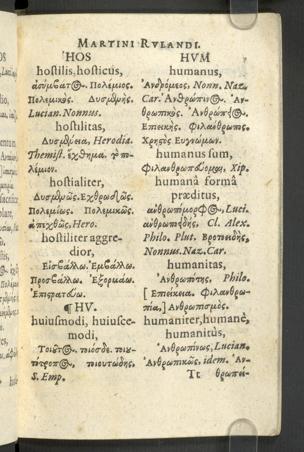 MARTINI RVLANDI.
HOS
hostilis, hosticus,
ἀσύμβατος. Πολέμιος.
Πολεμικός. Δυσμενής.
Lucian. Nonnus.
hostilitas,
Δυσμένεια, Herodia.
Themist. ἔχθημα. τὸ πο-
λέμιον.
hostialiter,
Δυσμενῶς. Ἐχθρωδῶς.
Πολεμίως. Πολεμικῶς.
ἀπεχθῶς, Hero.
hostiliter aggre-
dior,
Εἰσβάλλω. Ἐμβάλλω.
Προσβάλλω. Ἐξορμάω.
Ἐπιστρατεύω.
¶ HV.
huiusmodi, huiusce-
modi,
Τοιοῦτος. τοιόσδε. τοιου-
τότροπος. τοιουτώδης,
S. Emp.
HVM
humanus,
Ἀνδρόμεος, Nonn. Naz.
Car. Ἀνθρώπινος. Ἀν-
θρωπικός. Ἀνθρώπειος.
Ἐπιεικής. Φιλάνθρωπος.
Χρηστὸς Εὐγνώμων.
humanus sum,
Φιλανθρωπεύομαι, Xip.
humanâ formâ
præditus,
ἀνθρωπόμορφος, Luci.
ἀνθρωποειδής. Cl. Alex.
Philo. Plut. Βροτοειδής,
Nonnus. Naz. Car.
humanitas,
Ἀνθρωπότης, Philo.
[Ἐπιείκεια. Φιλανθρω-
πία,] Ἀνθρωπισμός.
humaniter, humanè,
humanitùs,
Ἀνθρωπίνως, Lucian.
Ἀνθρωπικῶς, idem. Ἀν-
Tt θρωπεί-